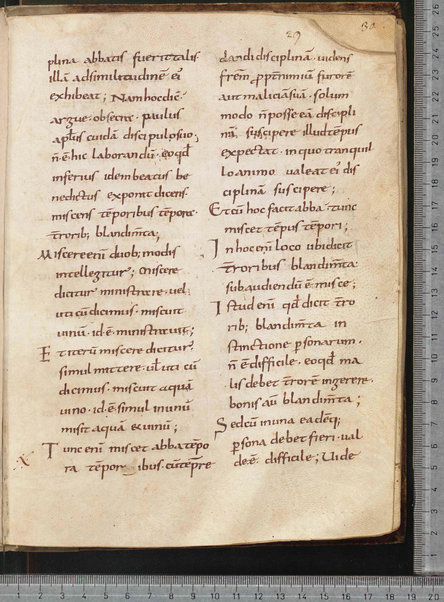 29
plina abbatis fuerit talis
illā ad similitudinē eī
exhibeat; Nam hoc dič̄
argue · obsecra · paulus
apl̄us cuidā discipulo suo;
n̄ ē hic laborandū · eo qd̄
inferius idem beatus be
nedictus exponit dicens.
miscens tēporibus tēpora ·
t̄rorib; blandim̄ta;
Miscere enī duob; modis
intellegitur; miscere
dicitur ministrare · vel
uti cū dicimus · miscuit
uinū · id ē · ministrauit;
Et iterū miscere dicitur
simul mittere · ul̄ uti cū
dicimus · miscuit aquā
uino · id ē simul in unū
misit aquā & uinū;
Tunc enī miscet abba tēpo
ra tēporibus · cū tēpre
dandi disciplinā · uidens
frēm p̱p̱ nimiū furorē
aut maliciā suā · solum
modo n̄ posse eā discipli
nā suscipere illud tēpus
expectat · in quo tranquil
lo animo ualeat eī dis
ciplinā suscipere;
Et cū hoc facit abba · tunc
miscet tēpus tēpori;
In hoc enī loco ubi dicit
t̄roribus blandim̄ta
subaudiendū ē misce;
Istud enī qd̄ dicit t̄ro
rib; blandim̄ta in
stinctione p̱sonarum ·
n̄ ē difficile · eo qd̄ ma
lis debet t̄rorē ingerere ·
bonis aū blandim̄ta;
Sed cū in una eadēq;
p̱sona debet fieri · val
de ē · difficile; Uide